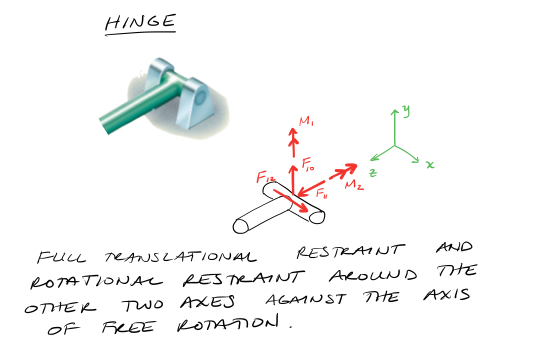 HINGE
M1
y
F10
z
x
F12
F11
M2
FULL TRANSLATIONAL RESTRAINT AND
ROTATIONAL RESTRAINT AROUND THE
OTHER TWO AXES AGAINST THE AXIS
OF FREE ROTATION.